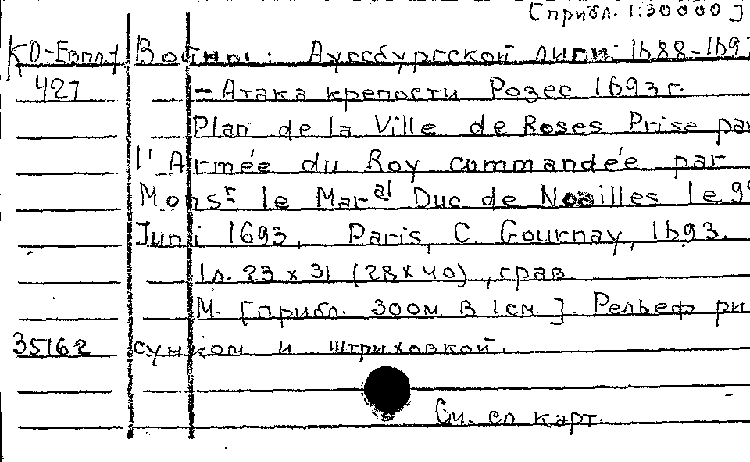 [прибл. 1:30000]
КО-Евпл/ Войны: Аугсбургской лиги 1688-169
427 - Атака крепости Розес 1693 г.
Plan de la Ville de Roses Prise par
l'Armée du Roy commandée par
Monsr le Maral Duc de Noailles le 9
Juni 1693. Paris, C. Gournay, 1693.
1 л. 23 x 31 (28 x 40), грав.
М. [прибл. 300м в 1см]. Рельеф ри
35162 сунком и штриховкой.
См. сл карт.